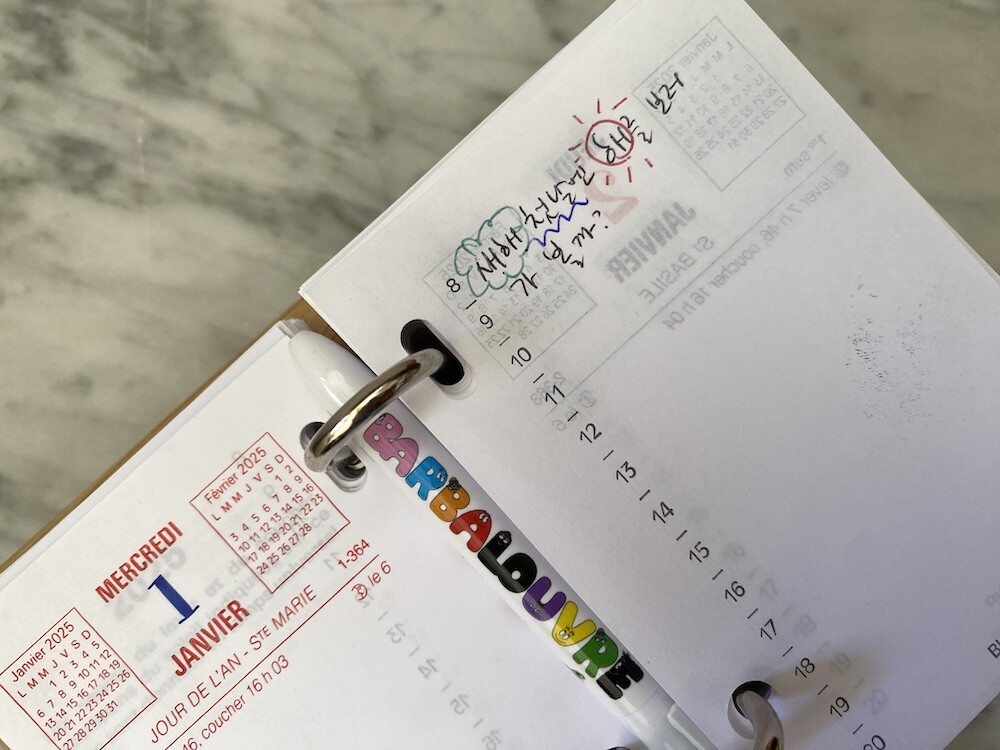 Janvier 2025
L M M J V S D
1 2 3 4 5
6 7 8 9 10 11 12
13 14 15 16 17 18 19
20 21 22 23 24 25 26
27 28 29 30 31
MERCREDI
1
JANVIER
Février 2025
L M M J V S D
1 2
3 4 5 6 7 8 9
10 11 12 13 14 15 16
17 18 19 20 21 22 23
24 25 26 27 28
JOUR DE L'AN - STE MARIE 1-364
16, coucher 16 h 03 le 6
BARBALOUVRE
8 새해 해를 보러
9
10
11
12
13
14
15
16
17
18
19
20